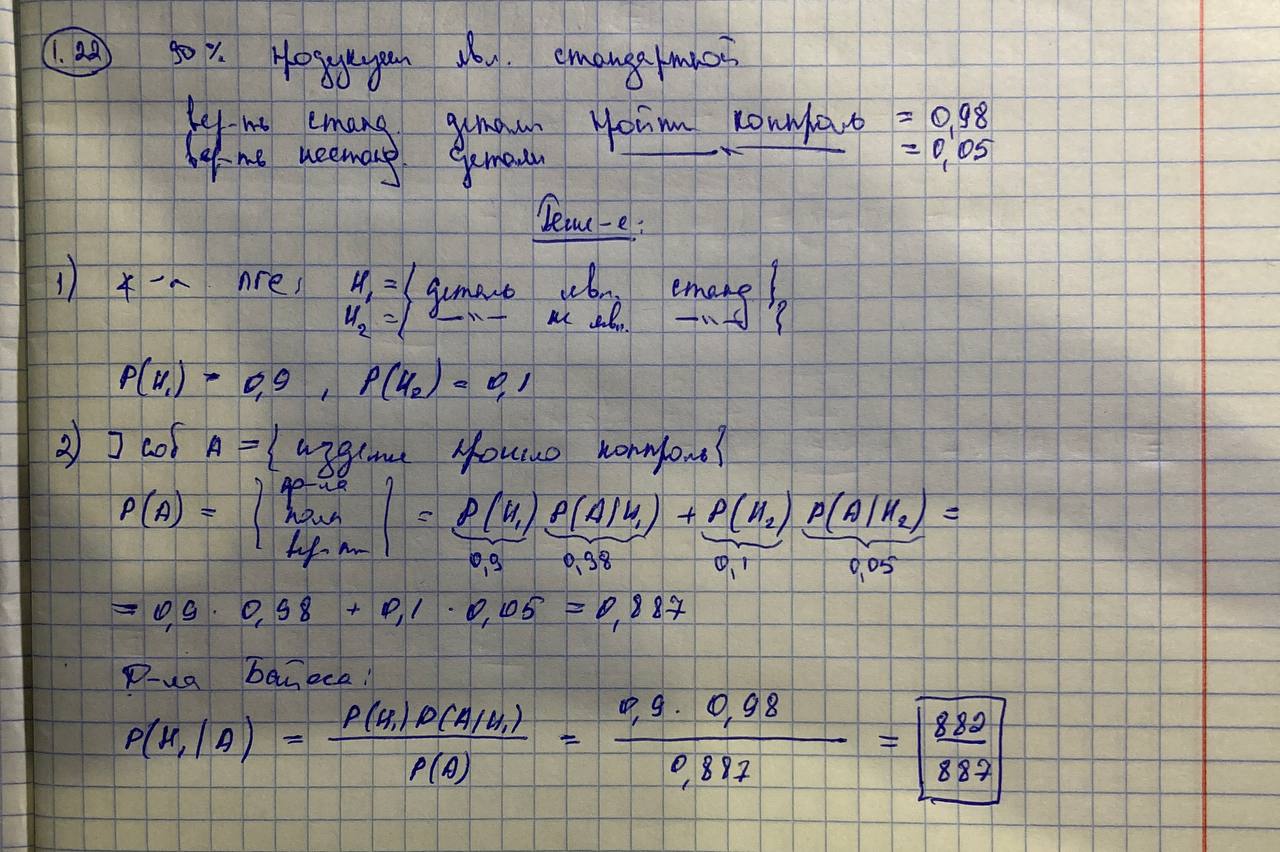 1.22 90% продукции явл. стандартной
вер-ть станд. детали пройти контроль = 0,98
вер-ть нестанд. детали —— " —— = 0,05
Реш-е:
1) ПГС: H₁ = { деталь явл. станд }
H₂ = { —"— не явл. —"— }
P(H₁) = 0,9 , P(H₂) = 0,1
2) ] соб A = { изделие прошло контроль }
P(A) = { ф-ла полн вер-ти } = P(H₁) P(A|H₁) + P(H₂) P(A|H₂) =
0,9 0,98 0,1 0,05
= 0,9 · 0,98 + 0,1 · 0,05 = 0,887
Ф-ла Байеса:
P(H₁|A) = P(H₁)P(A|H₁) / P(A) = 0,9 · 0,98 / 0,887 = 882 / 887